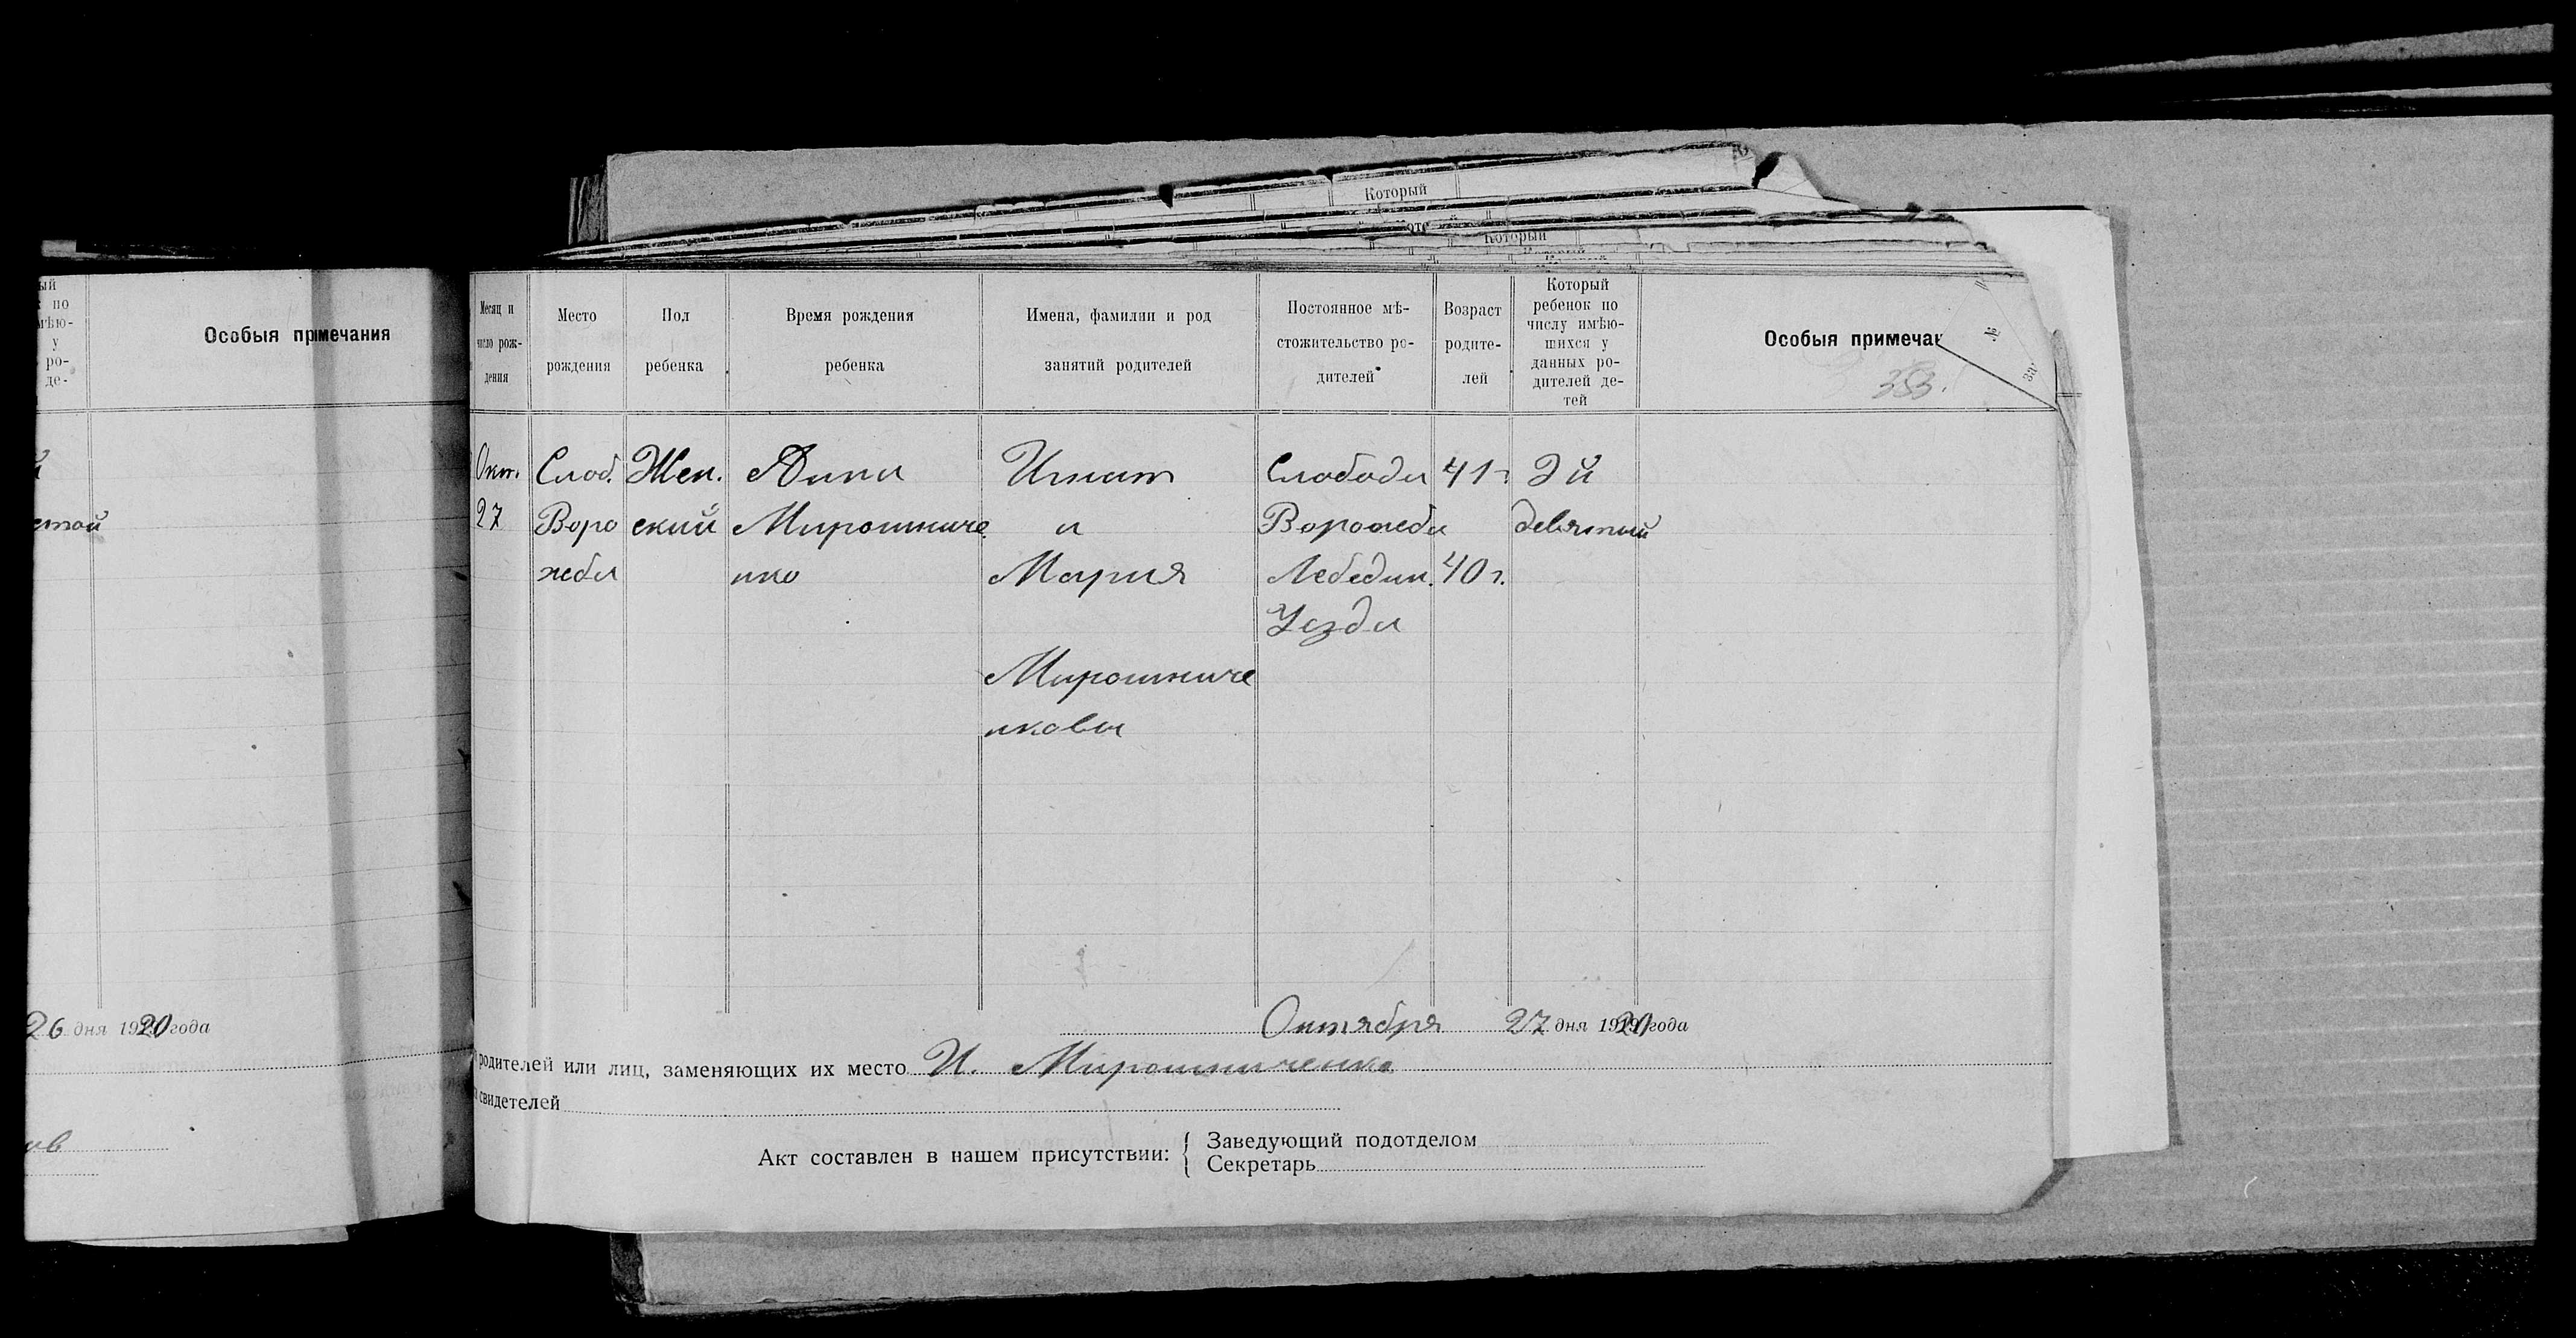 Который
Который
ый
по
мѣю-
у
ро-
де-
Особыя примечания
стой
26 дня 1920 года
ов
Месяц и
число рож-
дения
Место
рождения
Пол
ребенка
Время рождения
ребенка
Имена, фамилии и род
занятий родителей
Постоянное мѣ-
стожительство ро-
дителей
Возраст
родите-
лей
Который
ребенок по
числу имѣю-
шихся у
данных ро-
дителей де-
тей
Особыя примечан
№
За
353.
Окт. Слоб. Жен. Анна Игнат Слобода 41 г 9 й
27 Воро ский Мирошниче и Ворожба девятый
жба нко Мария Лебедин. 40 г.
Уезда
Мирошниче
нковы
Октября 27 дня 1920 года
родителей или лиц, заменяющих их место И. Мирошниченко
свидетелей
Акт составлен в нашем присутствии: { Заведующий подотделом
Секретарь